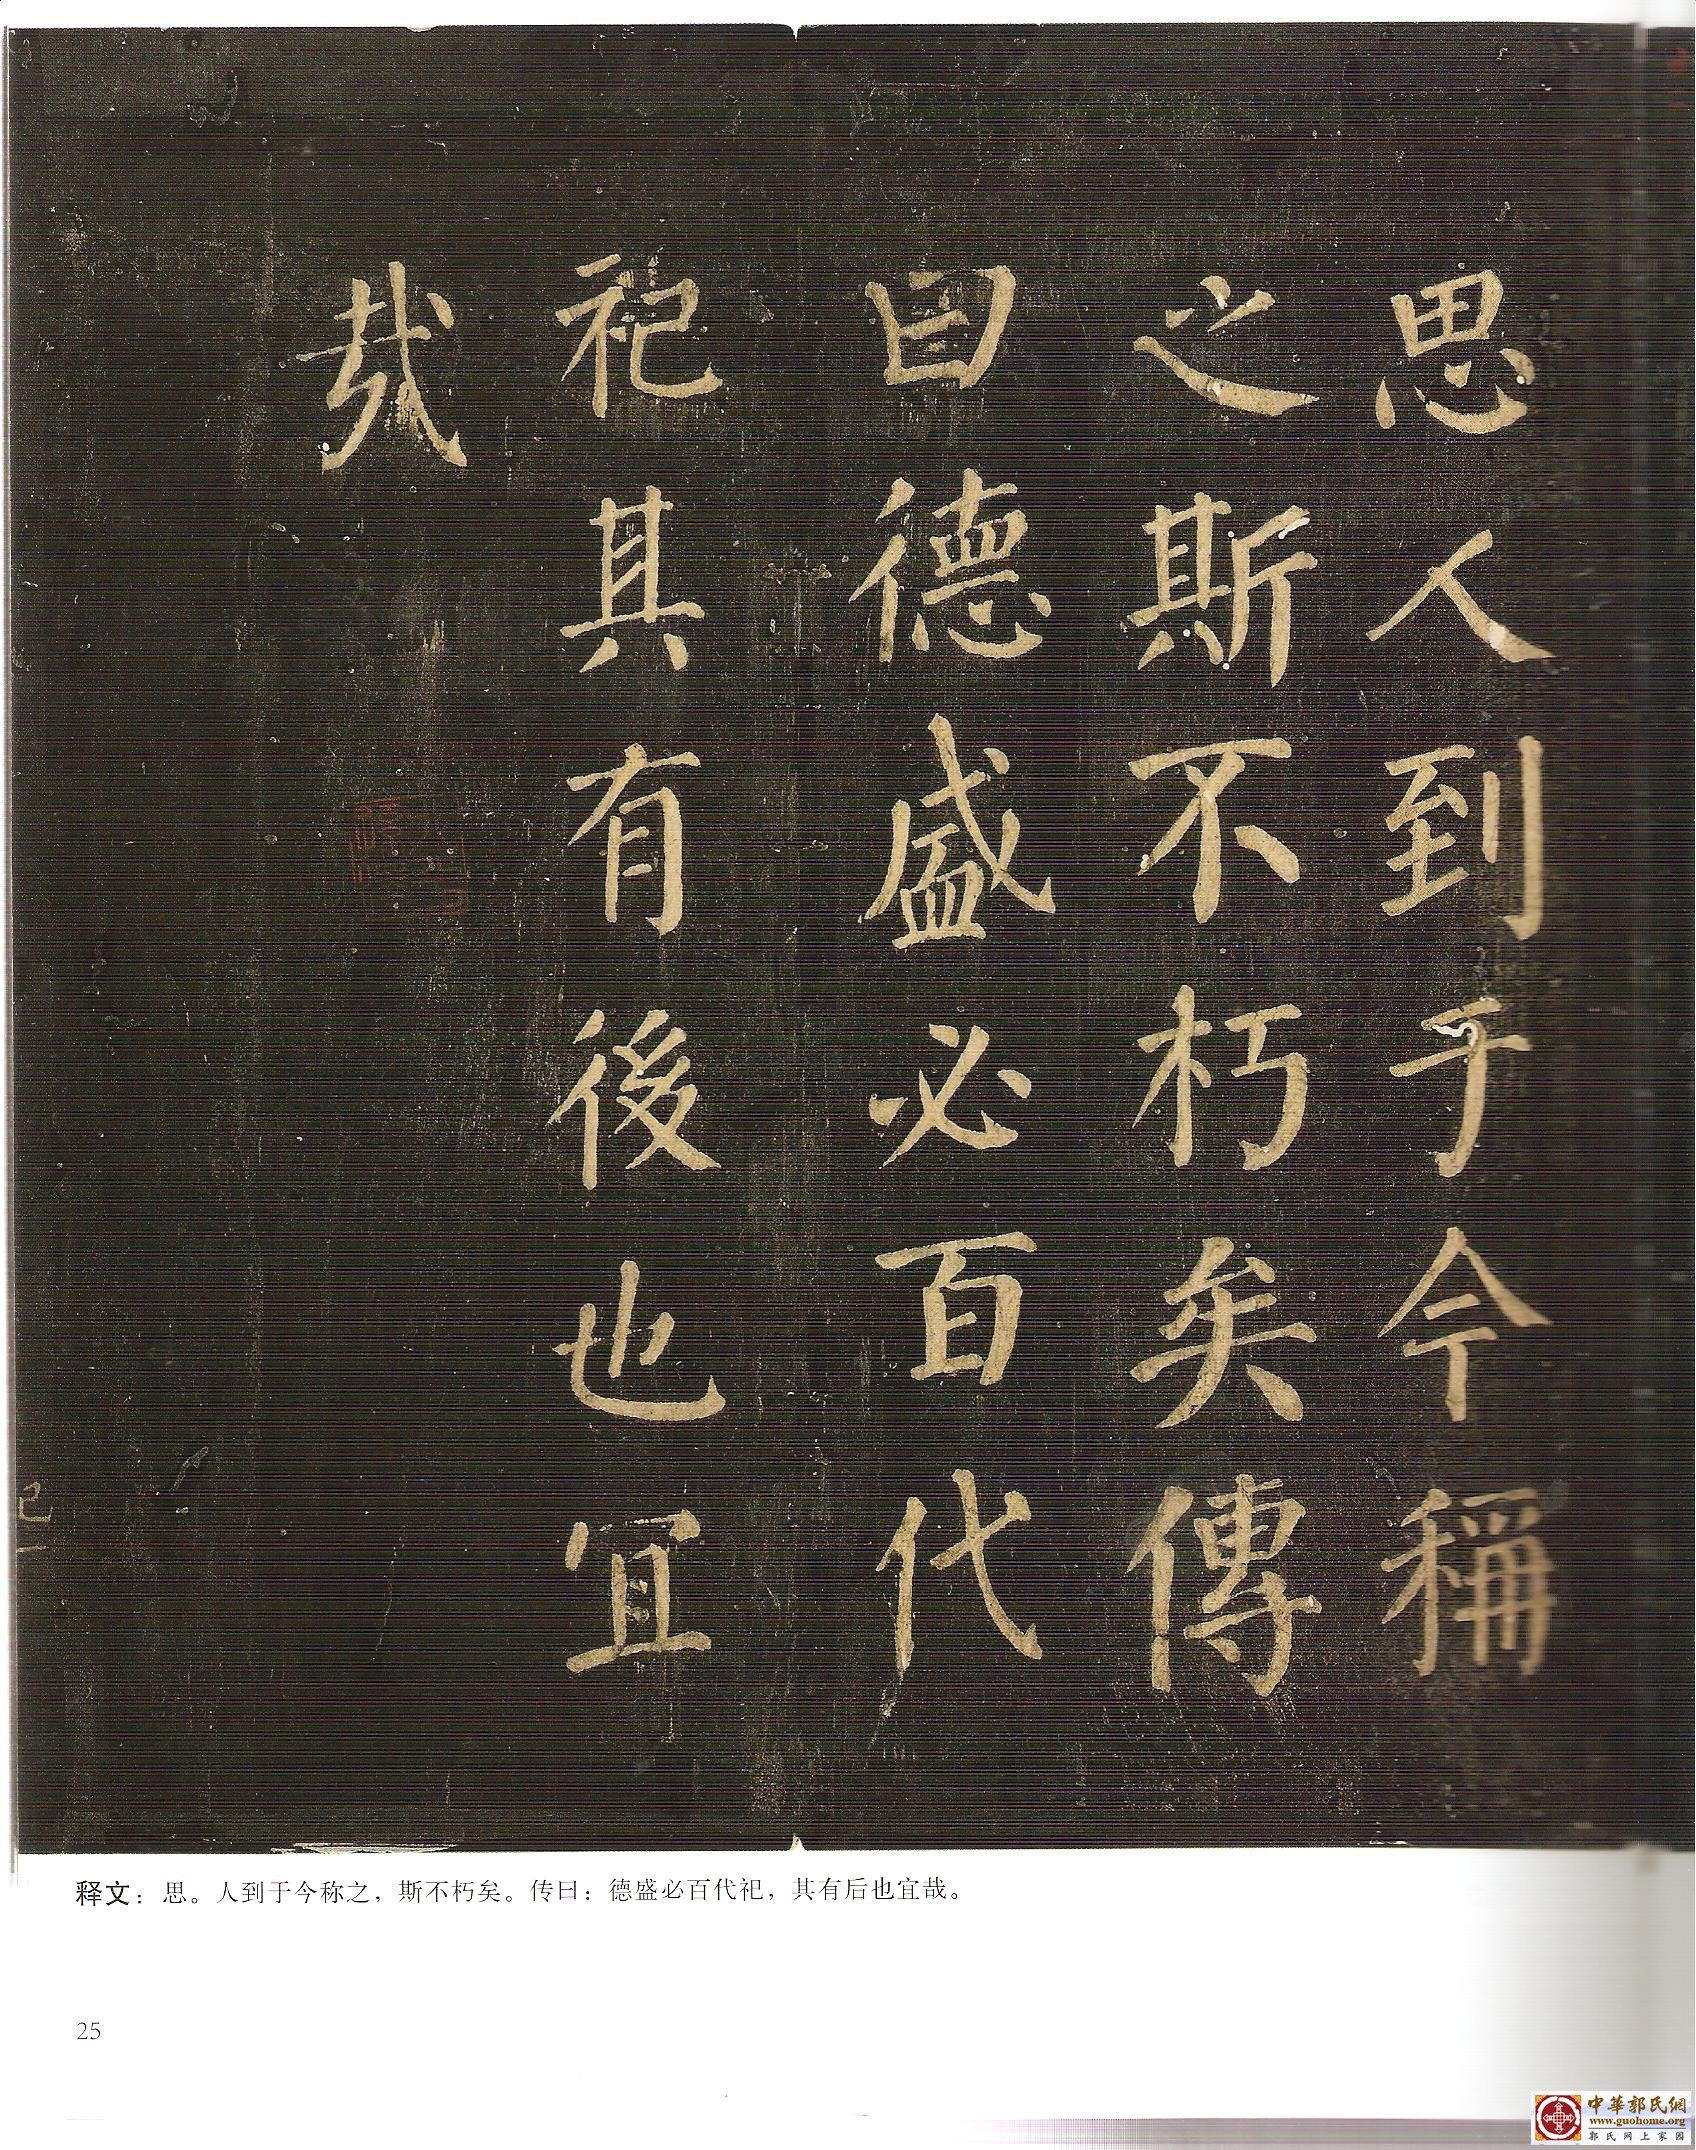 思人到于今稱
之斯不朽矣傳
曰德盛必百代
祀其有後也宜
哉
释文：思。人到于今称之，斯不朽矣。传曰：德盛必百代祀，其有后也宜哉。
25
中華郭氏網
www.guohome.org
郭氏网上家园